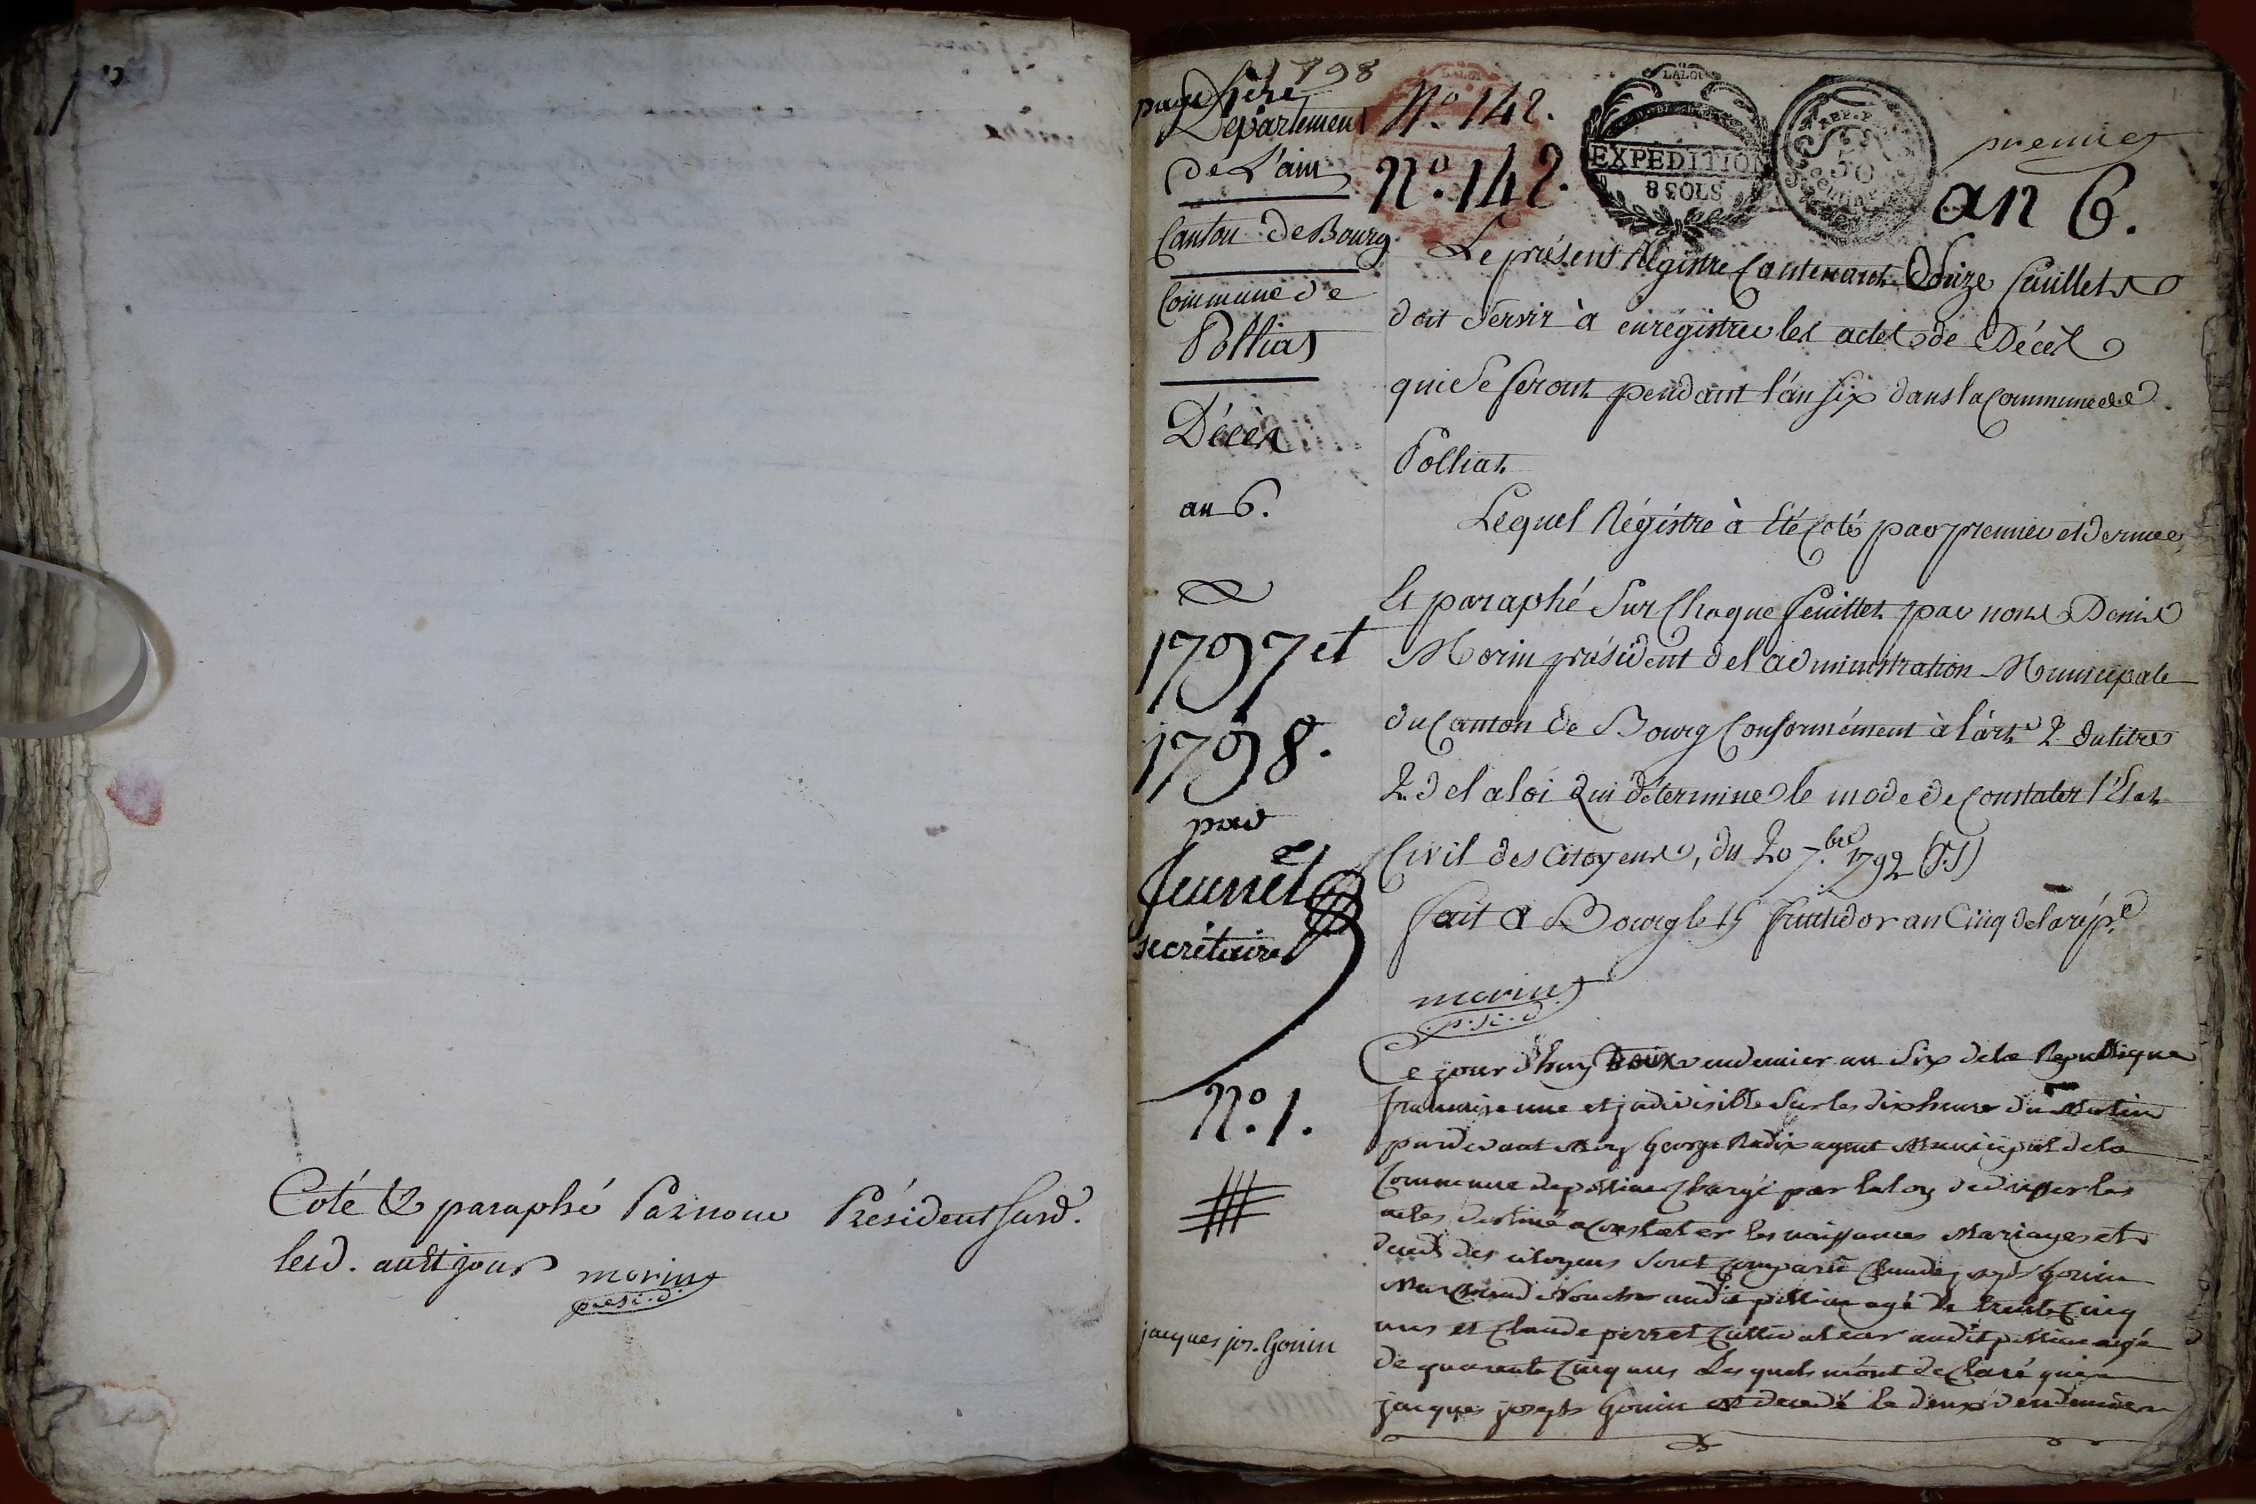 Coté & paraphé Par nous Président susd.
lesd. an & jour morin
présid.
1798
page 1ère
Département
de L'ain
Canton de Bourg
Commune de
Polliat
Décès
an 6.
1797 et
1798.
par
Jeunet
secrétaire
N.º 1.
jacques jos. Gonin
N.º 142.
N.º 142.
LA LOI
EXPEDITION
8 SOLS
REP. F
50
premier
an 6.
Le présent Régistre Contenant Onze feuillets
doit Servir à enrégistrer les actes de Décès
qui Se feront pendant l'an six dans la Commune de
Polliat
Lequel Régistre à Eté Coté par premier et dernier
Et paraphé Sur Chaque feuillet par nous Denis
Morin président de l'administration Municipale
du Canton de Bourg Conformément à l'art.e 2 du titre
2 de la loi Qui détermine le mode de Constater l'Etat
Civil des Citoyens, du 20 7.bre 1792 (V.S)
fait à Bourg le 15 fructidor an Cinq de la rép.e
morin
p.si.d
Ce jourd'huy troix vendemier an Six de la Republique
francaise une et jndivisible Sur les dix heure du Matin
pardevant Moy George Radix agent Municipal de la
Commune de polliat Chargé par la loy de diriger les
actes destiné a Constater les naissances Mariages et
deces des citoyens sont Comparu Claude joseph Gonin
Marchand Boucher audit polliat agé de trente Cinq
ans et Claude perret Cultivateur audit polliat agé
de quarante Cinq ans Les quels m'ont declaré que
jacques joseph Gonin est decedé le deux vendemier